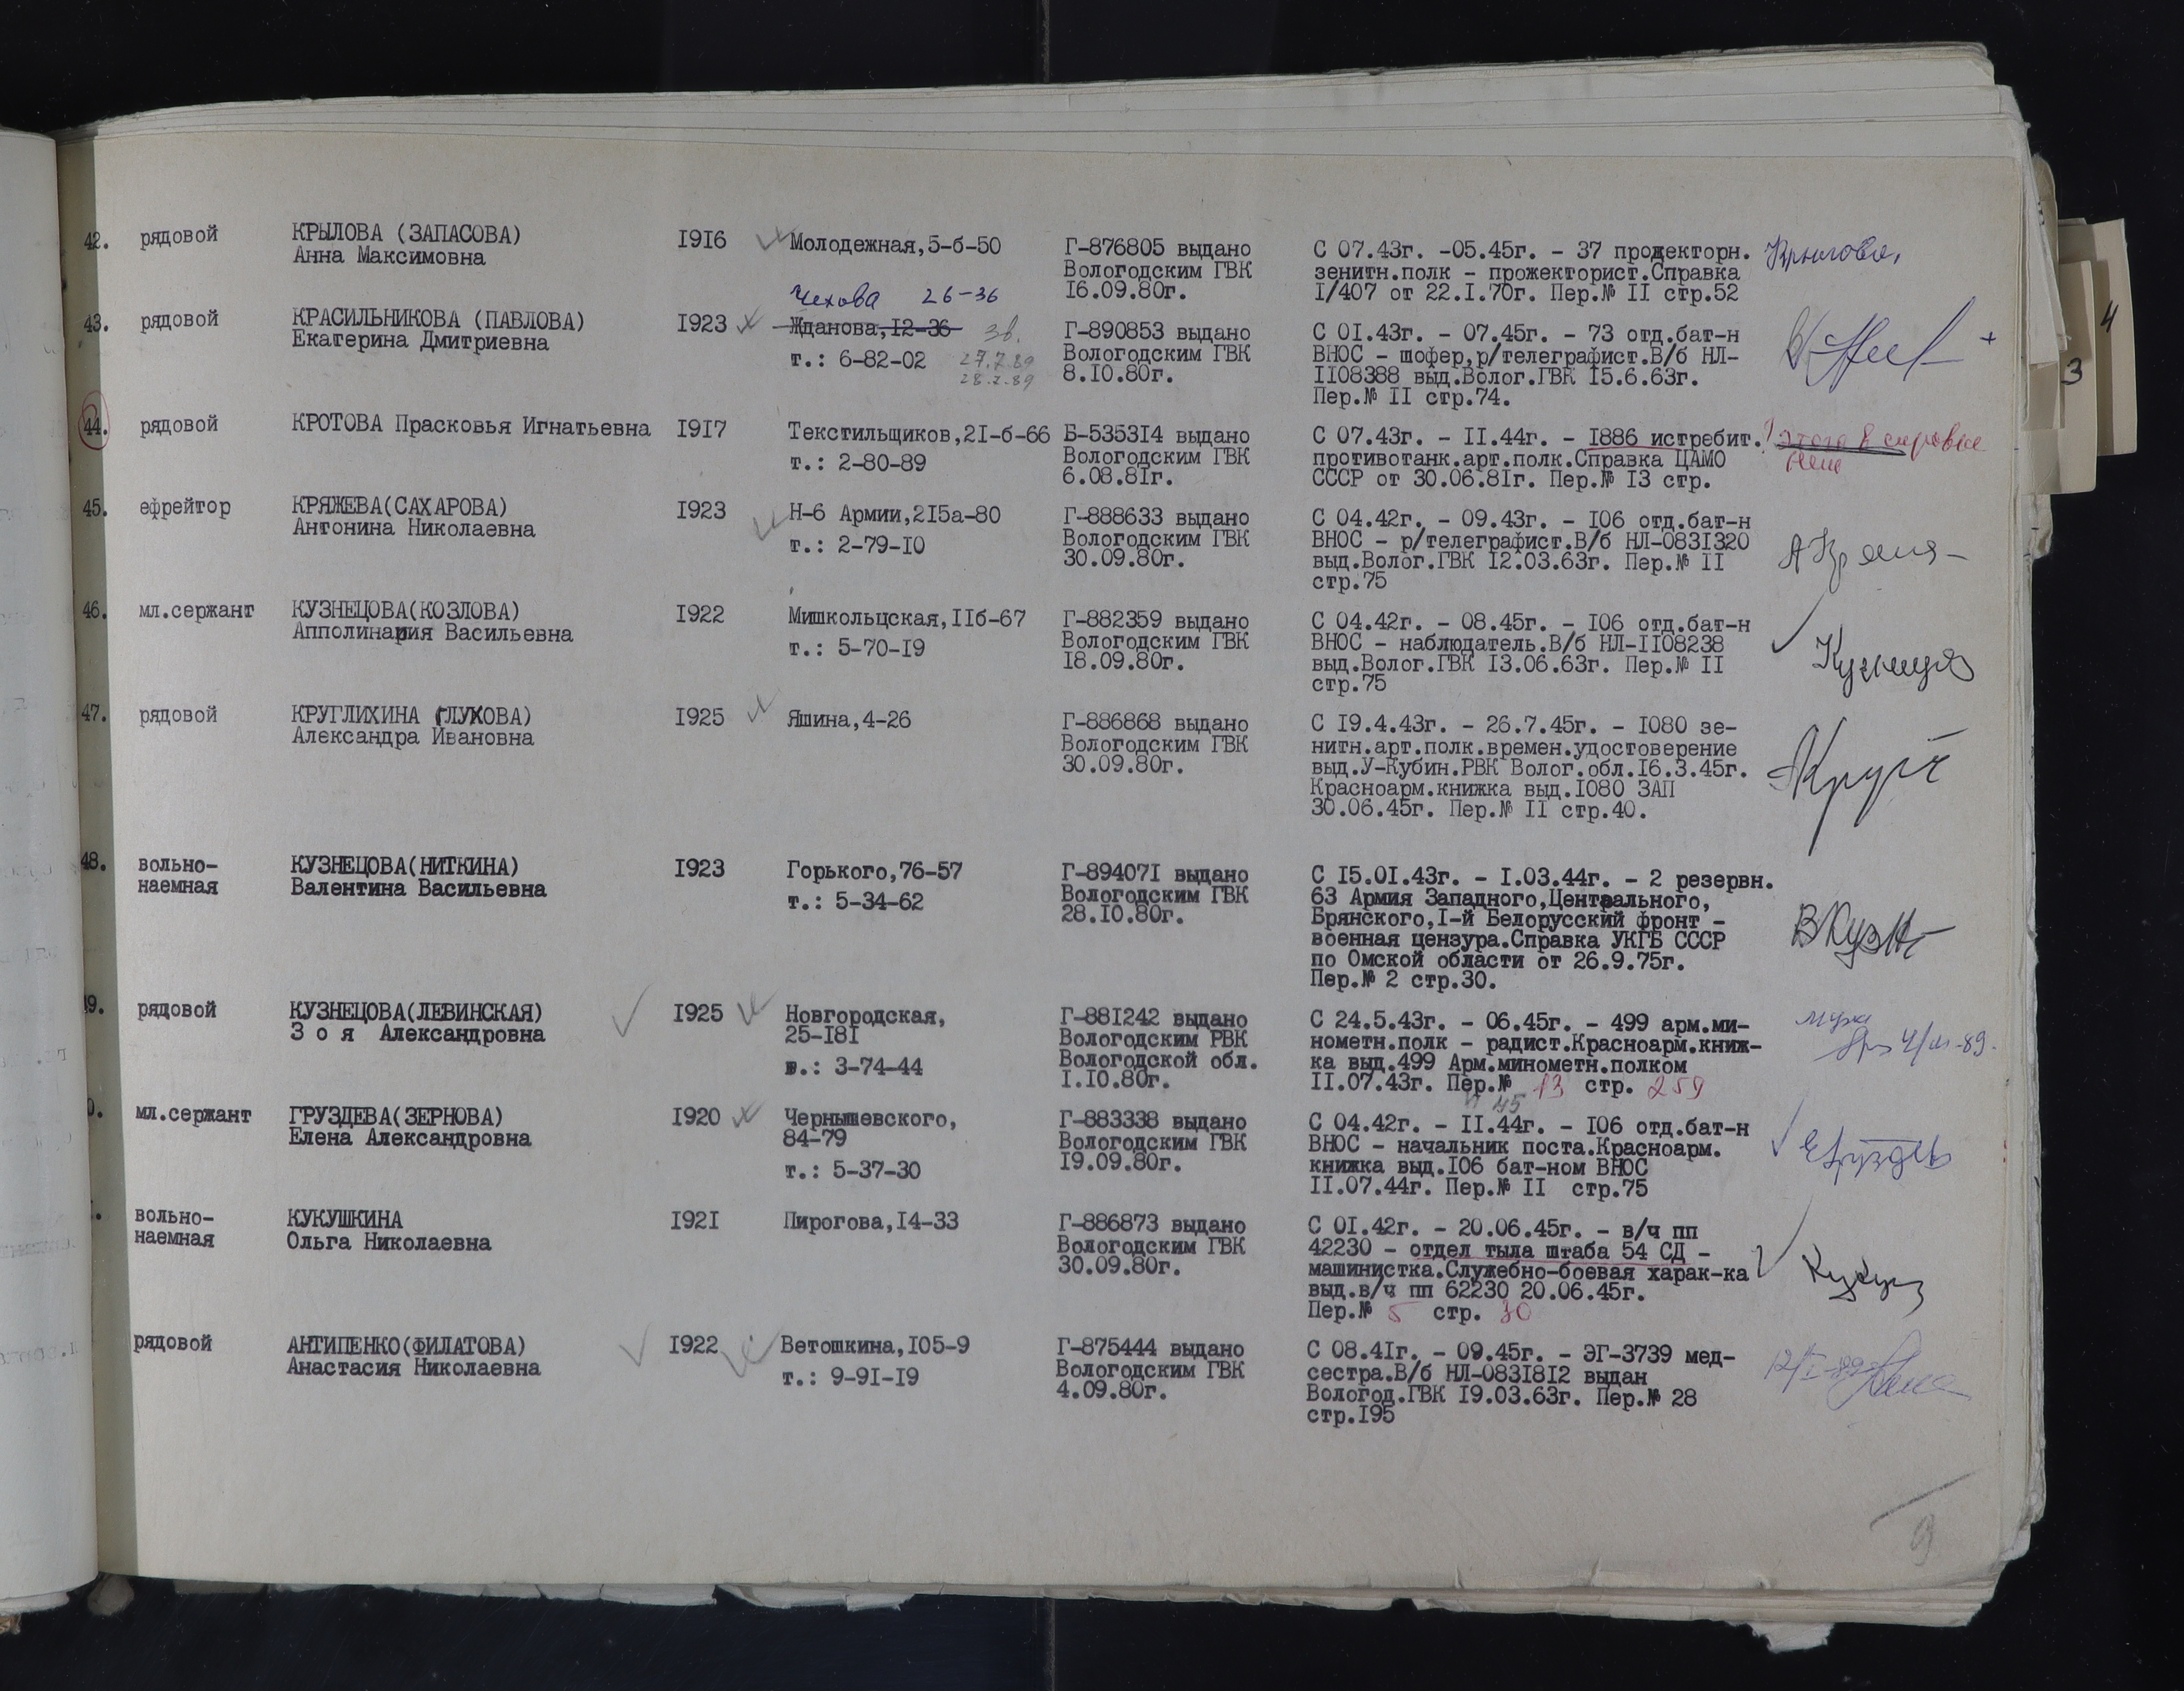 42. рядовой КРЫЛОВА (ЗАПАСОВА) 1916 Молодежная,5-б-50 Г-876805 выдано С 07.43г. -05.45г. - 37 прожекторн. Крылова
Анна Максимовна Вологодским ГВК зенитн.полк - прожекторист.Справка
16.09.80г. 1/407 от 22.1.70г. Пер.№ 11 стр.52
Чехова 26-36
43. рядовой КРАСИЛЬНИКОВА (ПАВЛОВА) 1923 Жданова,12-36 зв. Г-890853 выдано С 01.43г. - 07.45г. - 73 отд.бат-н
Екатерина Дмитриевна т.: 6-82-02 27.7.89 Вологодским ГВК ВНОС - шофер,р/телеграфист.В/б НЛ-
28.7.89 8.10.80г. 1108388 выд.Волог.ГВК 15.6.63г.
Пер.№ 11 стр.74.
44. рядовой КРОТОВА Прасковья Игнатьевна 1917 Текстильщиков,21-б-66 Б-535314 выдано С 07.43г. - 11.44г. - 1886 истребит. ! этого в справке
т.: 2-80-89 Вологодским ГВК противотанк.арт.полк.Справка ЦАМО нет
6.08.81г. СССР от 30.06.81г. Пер.№ 13 стр.
45. ефрейтор КРЯЖЕВА(САХАРОВА) 1923 Н-6 Армии,215а-80 Г-888633 выдано С 04.42г. - 09.43г. - 106 отд.бат-н
Антонина Николаевна т.: 2-79-10 Вологодским ГВК ВНОС - р/телеграфист.В/б НЛ-0831320
30.09.80г. выд.Волог.ГВК 12.03.63г. Пер.№ 11
стр.75
46. мл.сержант КУЗНЕЦОВА(КОЗЛОВА) 1922 Мишкольцская,11б-67 Г-882359 выдано С 04.42г. - 08.45г. - 106 отд.бат-н
Апполинария Васильевна т.: 5-70-19 Вологодским ГВК ВНОС - наблюдатель.В/б НЛ-1108238
18.09.80г. выд.Волог.ГВК 13.06.63г. Пер.№ 11
стр.75
47. рядовой КРУГЛИХИНА (ГЛУХОВА) 1925 Яшина,4-26 Г-886868 выдано С 19.4.43г. - 26.7.45г. - 1080 зе-
Александра Ивановна Вологодским ГВК нитн.арт.полк.времен.удостоверение
30.09.80г. выд.У-Кубин.РВК Волог.обл.16.3.45г.
Красноарм.книжка выд.1080 ЗАП
30.06.45г. Пер.№ 11 стр.40.
48. вольно- КУЗНЕЦОВА(НИТКИНА) 1923 Горького,76-57 Г-894071 выдано С 15.01.43г. - 1.03.44г. - 2 резервн.
наемная Валентина Васильевна т.: 5-34-62 Вологодским ГВК 63 Армия Западного,Центрального,
28.10.80г. Брянского,1-й Белорусский фронт -
военная цензура.Справка УКГБ СССР
по Омской области от 26.9.75г.
Пер.№ 2 стр.30.
49. рядовой КУЗНЕЦОВА(ЛЕВИНСКАЯ) 1925 Новгородская, Г-881242 выдано С 24.5.43г. - 06.45г. - 499 арм.ми-
З о я Александровна 25-181 Вологодским РВК нометн.полк - радист.Красноарм.книж-
т.: 3-74-44 Вологодской обл. ка выд.499 Арм.минометн.полком
1.10.80г. 11.07.43г. Пер.№ 13 стр. 259
45
0. мл.сержант ГРУЗДЕВА(ЗЕРНОВА) 1920 Чернышевского, Г-883338 выдано С 04.42г. - 11.44г. - 106 отд.бат-н
Елена Александровна 84-79 Вологодским ГВК ВНОС - начальник поста.Красноарм.
т.: 5-37-30 19.09.80г. книжка выд.106 бат-ном ВНОС
11.07.44г. Пер.№ 11 стр.75
вольно- КУКУШКИНА 1921 Пирогова,14-33 Г-886873 выдано С 01.42г. - 20.06.45г. - в/ч пп
наемная Ольга Николаевна Вологодским ГВК 42230 - отдел тыла штаба 54 СД -
30.09.80г. машинистка.Служебно-боевая харак-ка
выд.в/ч пп 62230 20.06.45г.
Пер.№ 5 стр. 30
рядовой АНТИПЕНКО(ФИЛАТОВА) 1922 Ветошкина,105-9 Г-875444 выдано С 08.41г. - 09.45г. - ЭГ-3739 мед-
Анастасия Николаевна т.: 9-91-19 Вологодским ГВК сестра.В/б НЛ-0831812 выдан
4.09.80г. Вологод.ГВК 19.03.63г. Пер.№ 28
стр.195
9
4
3